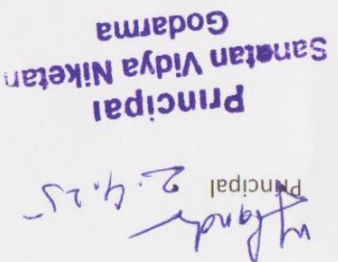 Principal
2.4.25
Principal
Sanatan Vidya Niketan
Godarma